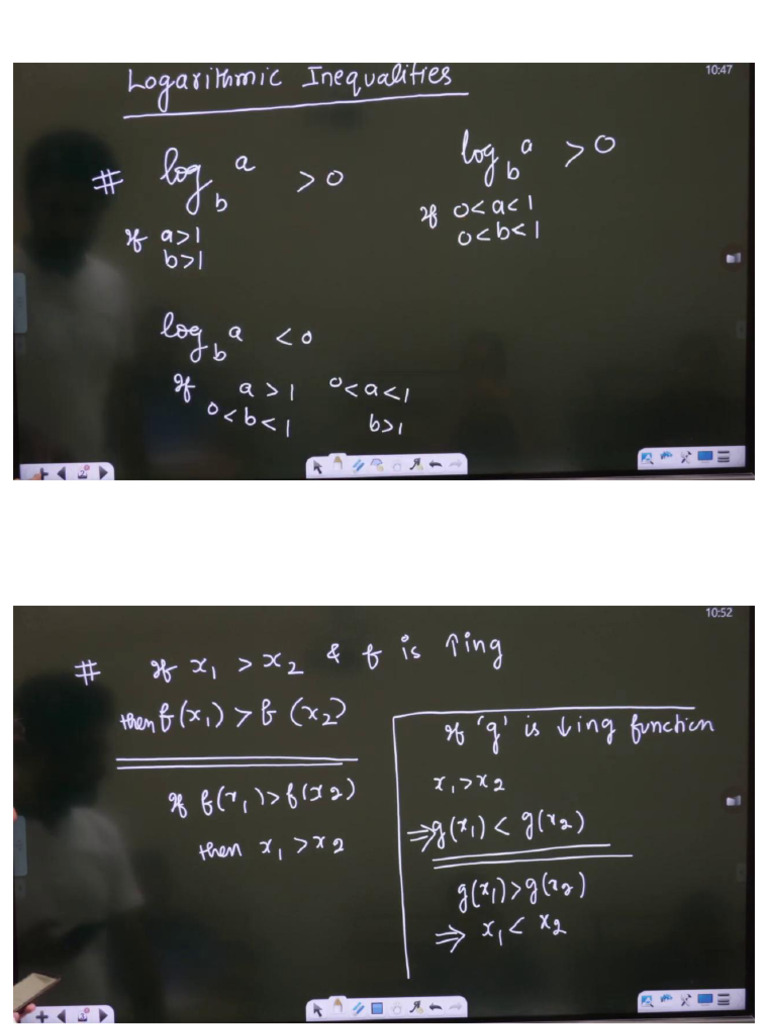 Logarithmic Inequalities
10:47
# log_b a > 0
if a>1
b>1
log_b a > 0
if 0<a<1
0<b<1
log_b a < 0
if a>1 0<a<1
0<b<1 b>1
10:52
# if x₁ > x₂ & f is ↑ing
then f(x₁) > f(x₂)
if f(x₁)>f(x₂)
then x₁ > x₂
if 'g' is ↓ing function
x₁>x₂
⇒g(x₁) < g(x₂)
g(x₁)>g(x₂)
⇒ x₁< x₂